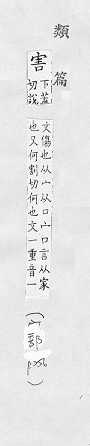 類篇
害
下蓋
切說
文傷也从宀从口宀口言从家
也又何割切何也文一重音一
(宀部)